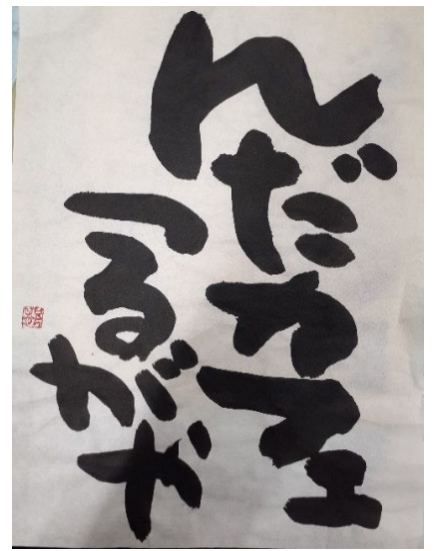 んだカフェ
つるがや